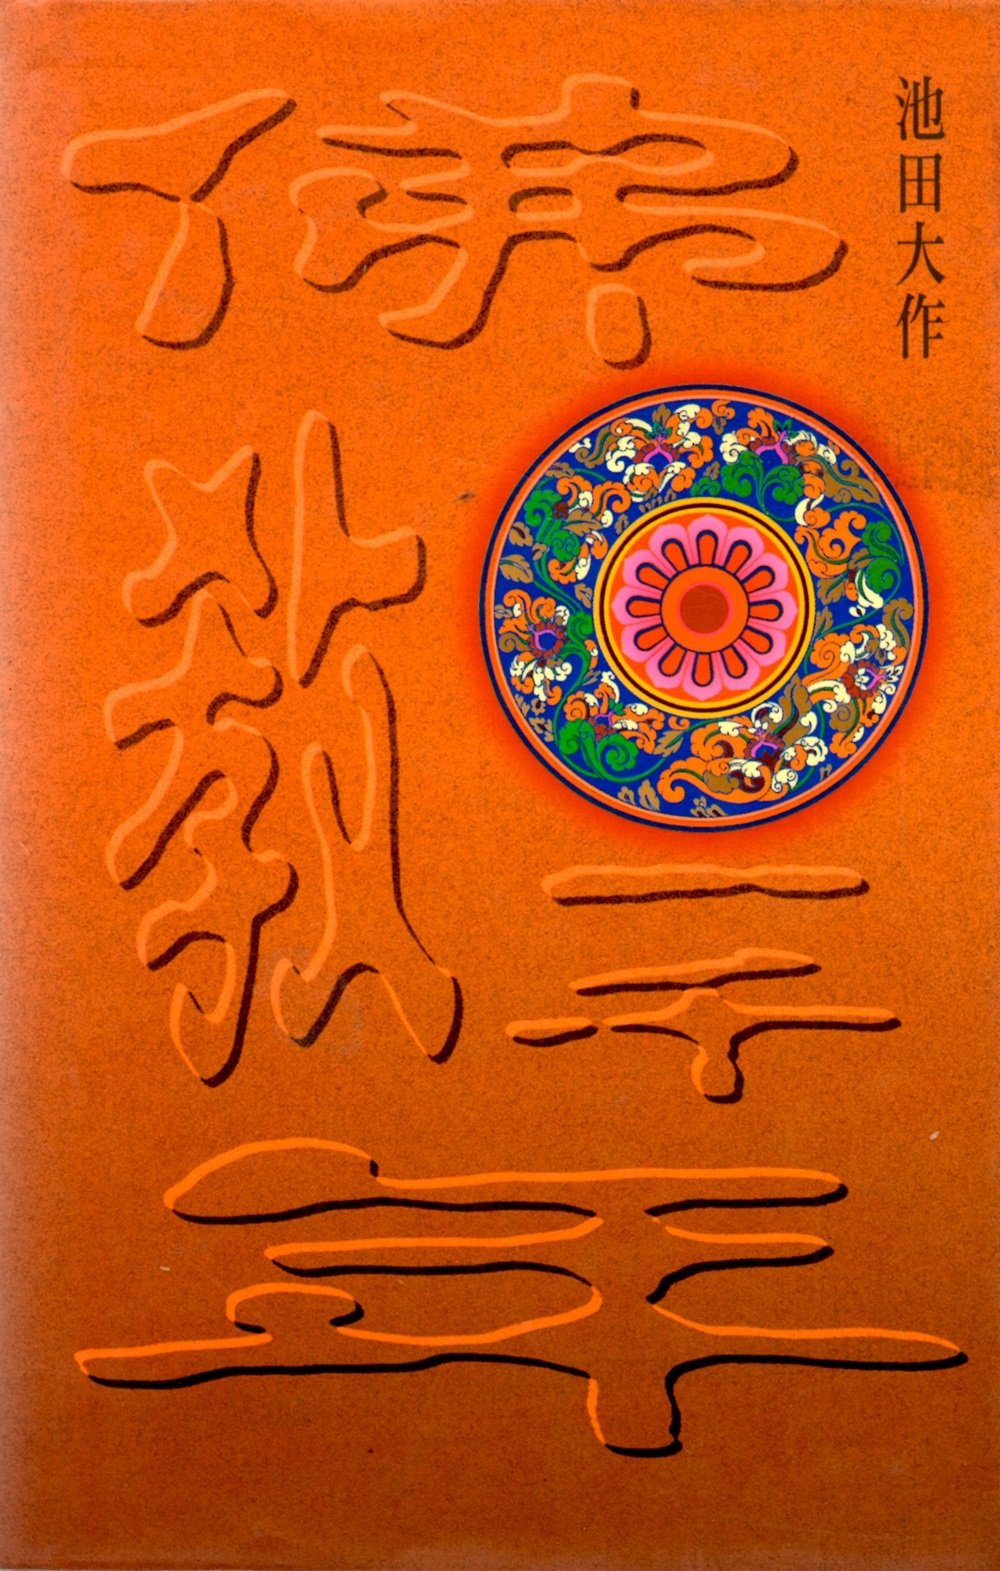 池田大作
佛教一千年